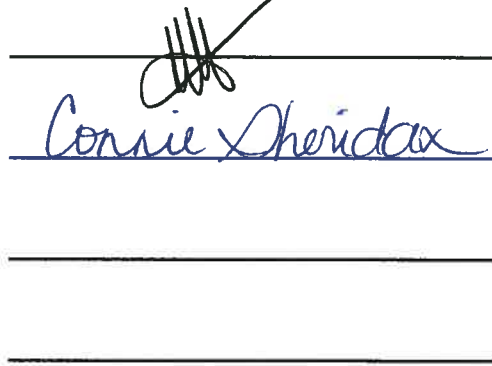 Connie Sheridan